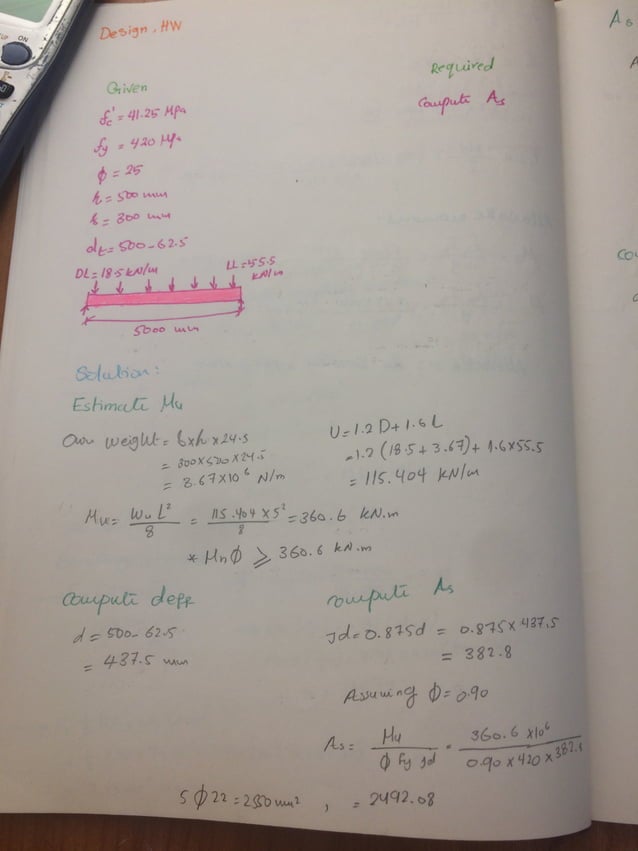 Design, HW
Given
Required
fc' = 41.25 MPa
Compute As
fy = 420 MPa
ϕ = 25
h = 500 mm
b = 300 mm
dt = 500 - 62.5
DL = 18.5 kN/m
LL = 55.5 kN/m
5000 mm
Solution:
Estimate Mu
Own weight = b x h x 24.5
= 300 x 500 x 24.5
= 3.67 x 10^6 N/m
U = 1.2 D + 1.6 L
= 1.2 (18.5 + 3.67) + 1.6 x 55.5
= 115.404 kN/m
Mu = Wu L² / 8 = 115.404 x 5² / 8 = 360.6 kN.m
* Mn ϕ ⩾ 360.6 kN.m
Compute deff
d = 500 - 62.5
= 437.5 mm
compute As
Jd = 0.875d = 0.875 x 437.5
= 382.8
Assuming ϕ = 0.90
As = Mu / ϕ fy Jd = 360.6 x 10^6 / 0.90 x 420 x 382.8
= 2492.08
5 ϕ 22 = 2550 mm² ,
As